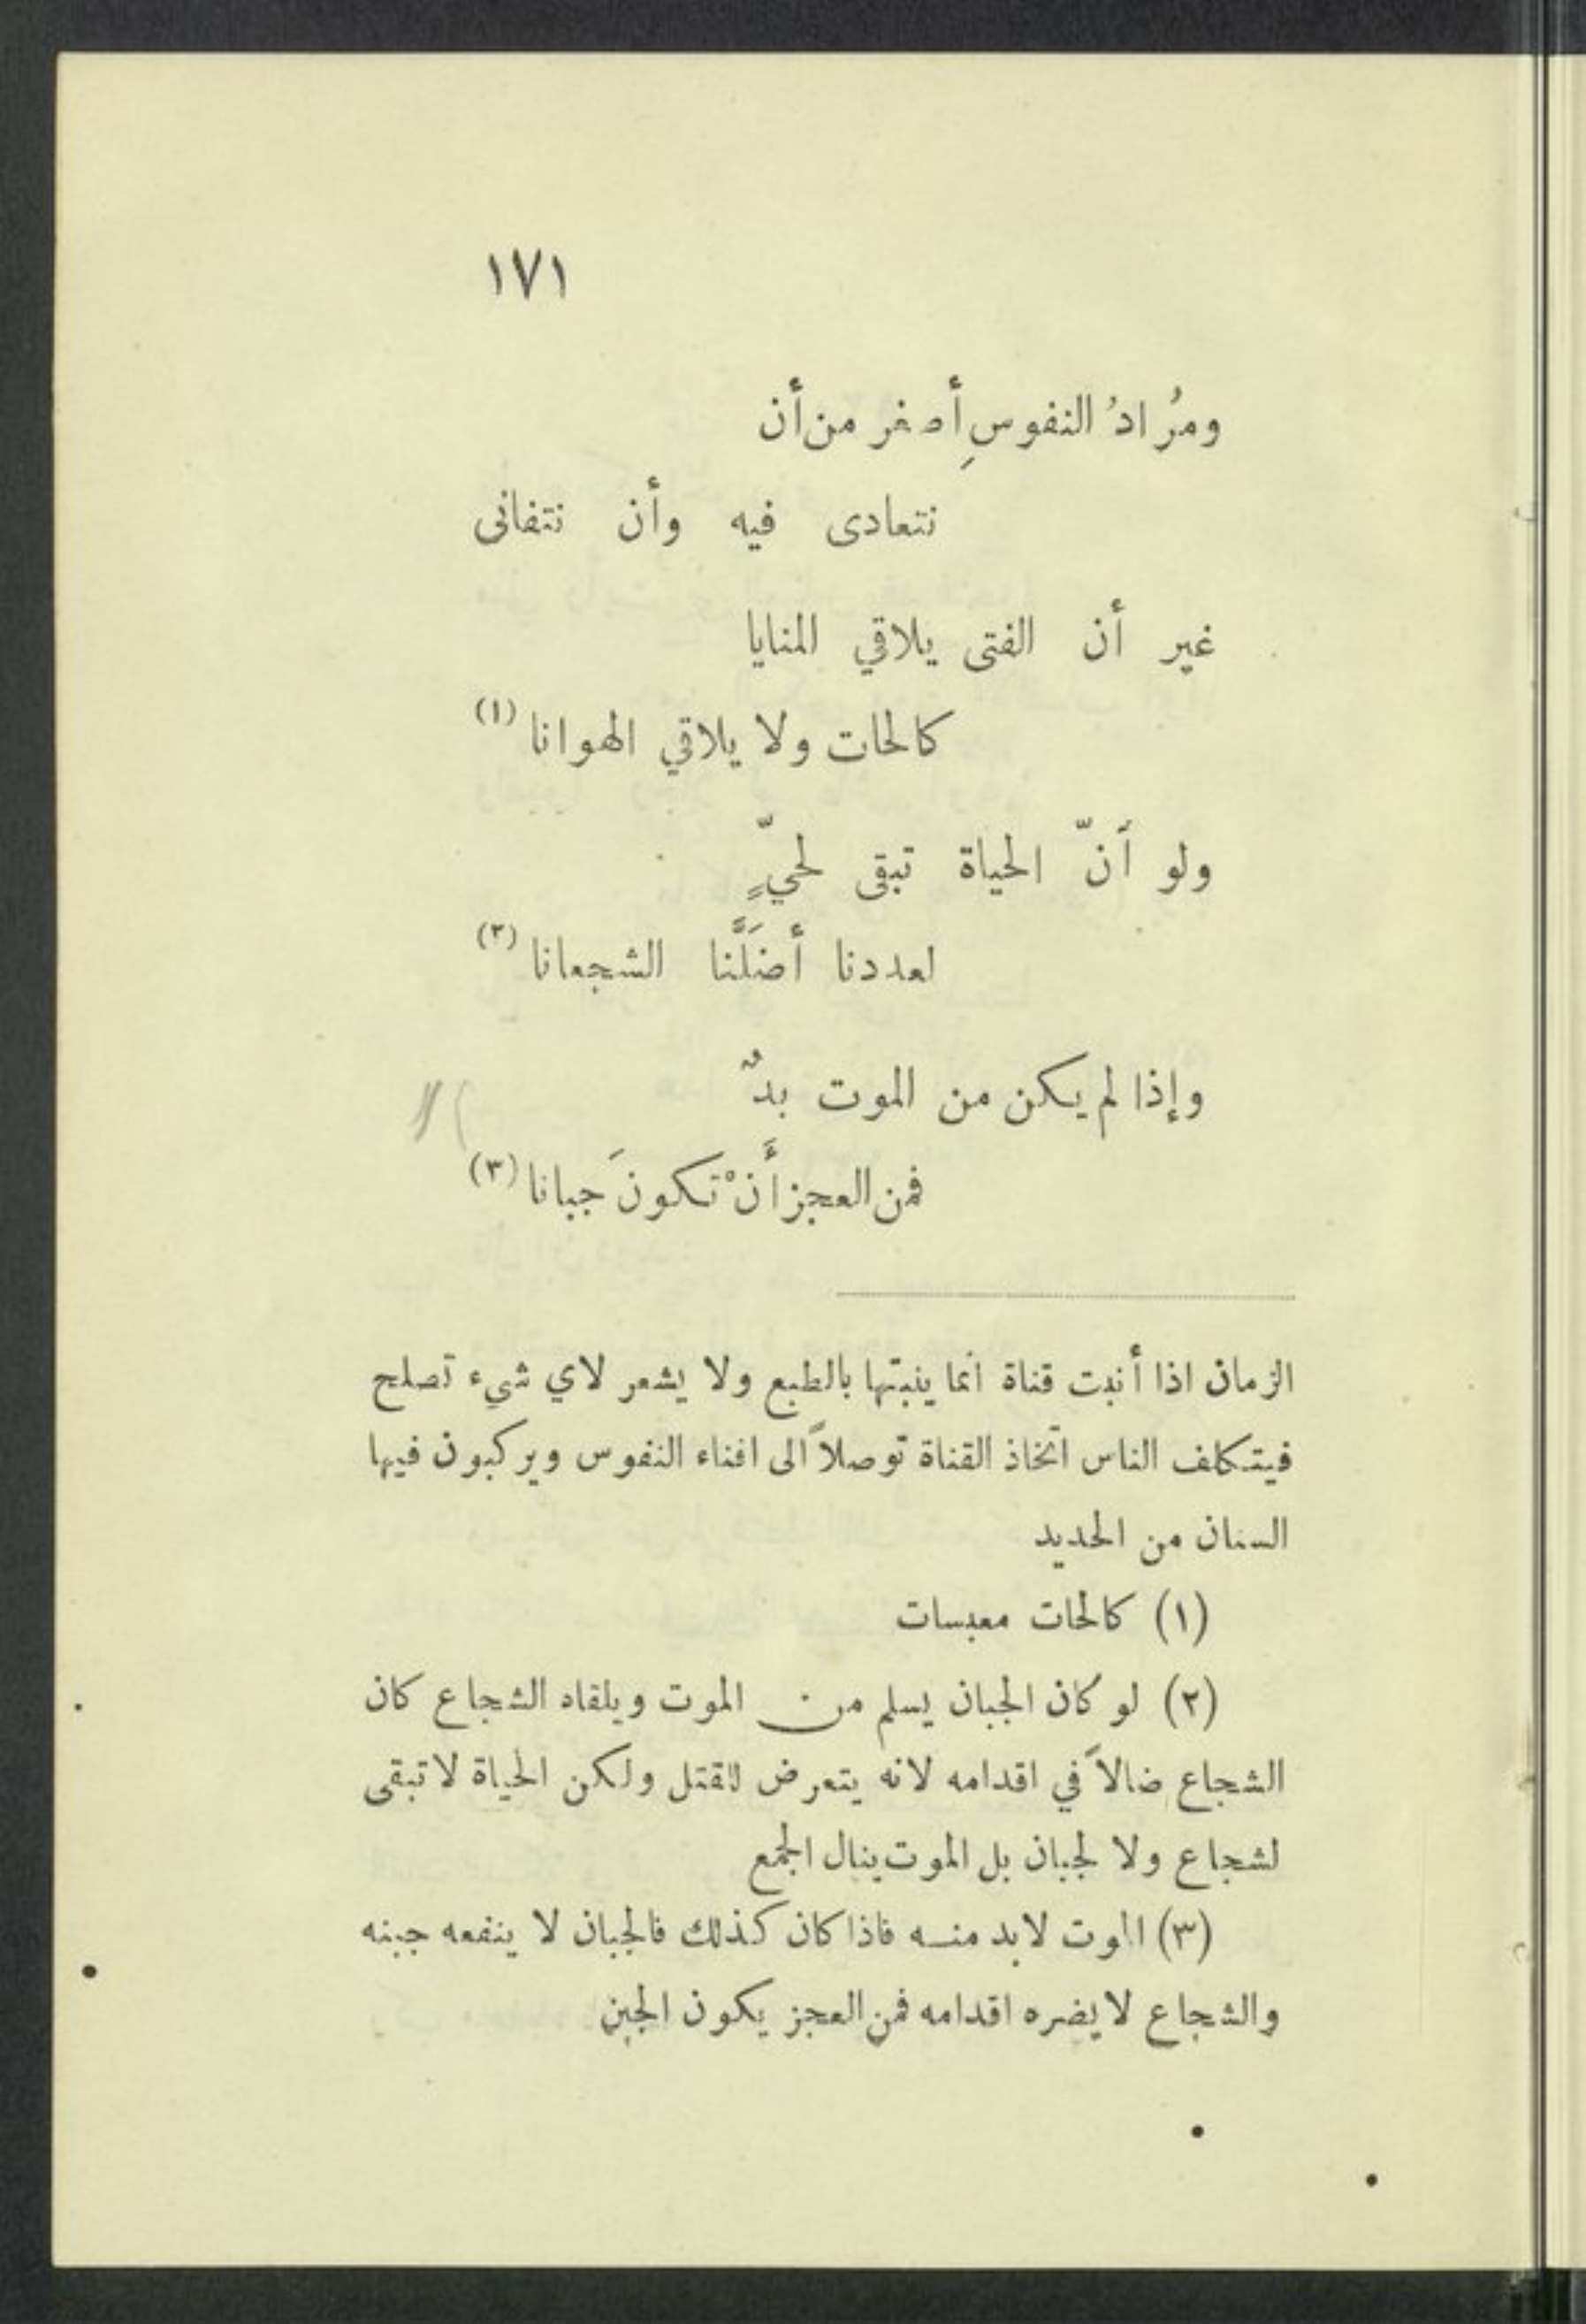 ١٧١
ومُرادُ النفوسِ أصغر من أن
نتعادى فيه وأن نتفانى
غير أن الفتى يلاقي المنايا
كالحات ولا يلاقي الهوانا (١)
ولو أنّ الحياة تبقى لحيٍّ
لعددنا أضلَّنا الشجعانا (٢)
وإذا لم يكن من الموت بدٌّ
فمن العجز أَنْ تكونَ جبانا (٣)
الزمان اذا أنبت قناة انما ينبتها بالطبع ولا يشعر لاي شيء تصلح
فيتكلف الناس اتخاذ القناة توصلاً الى افناء النفوس ويركبون فيها
السنان من الحديد
(١) كالحات معبسات
(٢) لو كان الجبان يسلم من الموت ويلقاه الشجاع كان
الشجاع ضالاً في اقدامه لانه يتعرض للقتل ولكن الحياة لا تبقى
لشجاع ولا لجبان بل الموت ينال الجمع
(٣) الموت لابد منه فاذا كان كذلك فالجبان لا ينفعه جبنه
والشجاع لا يضره اقدامه فمن العجز يكون الجبن